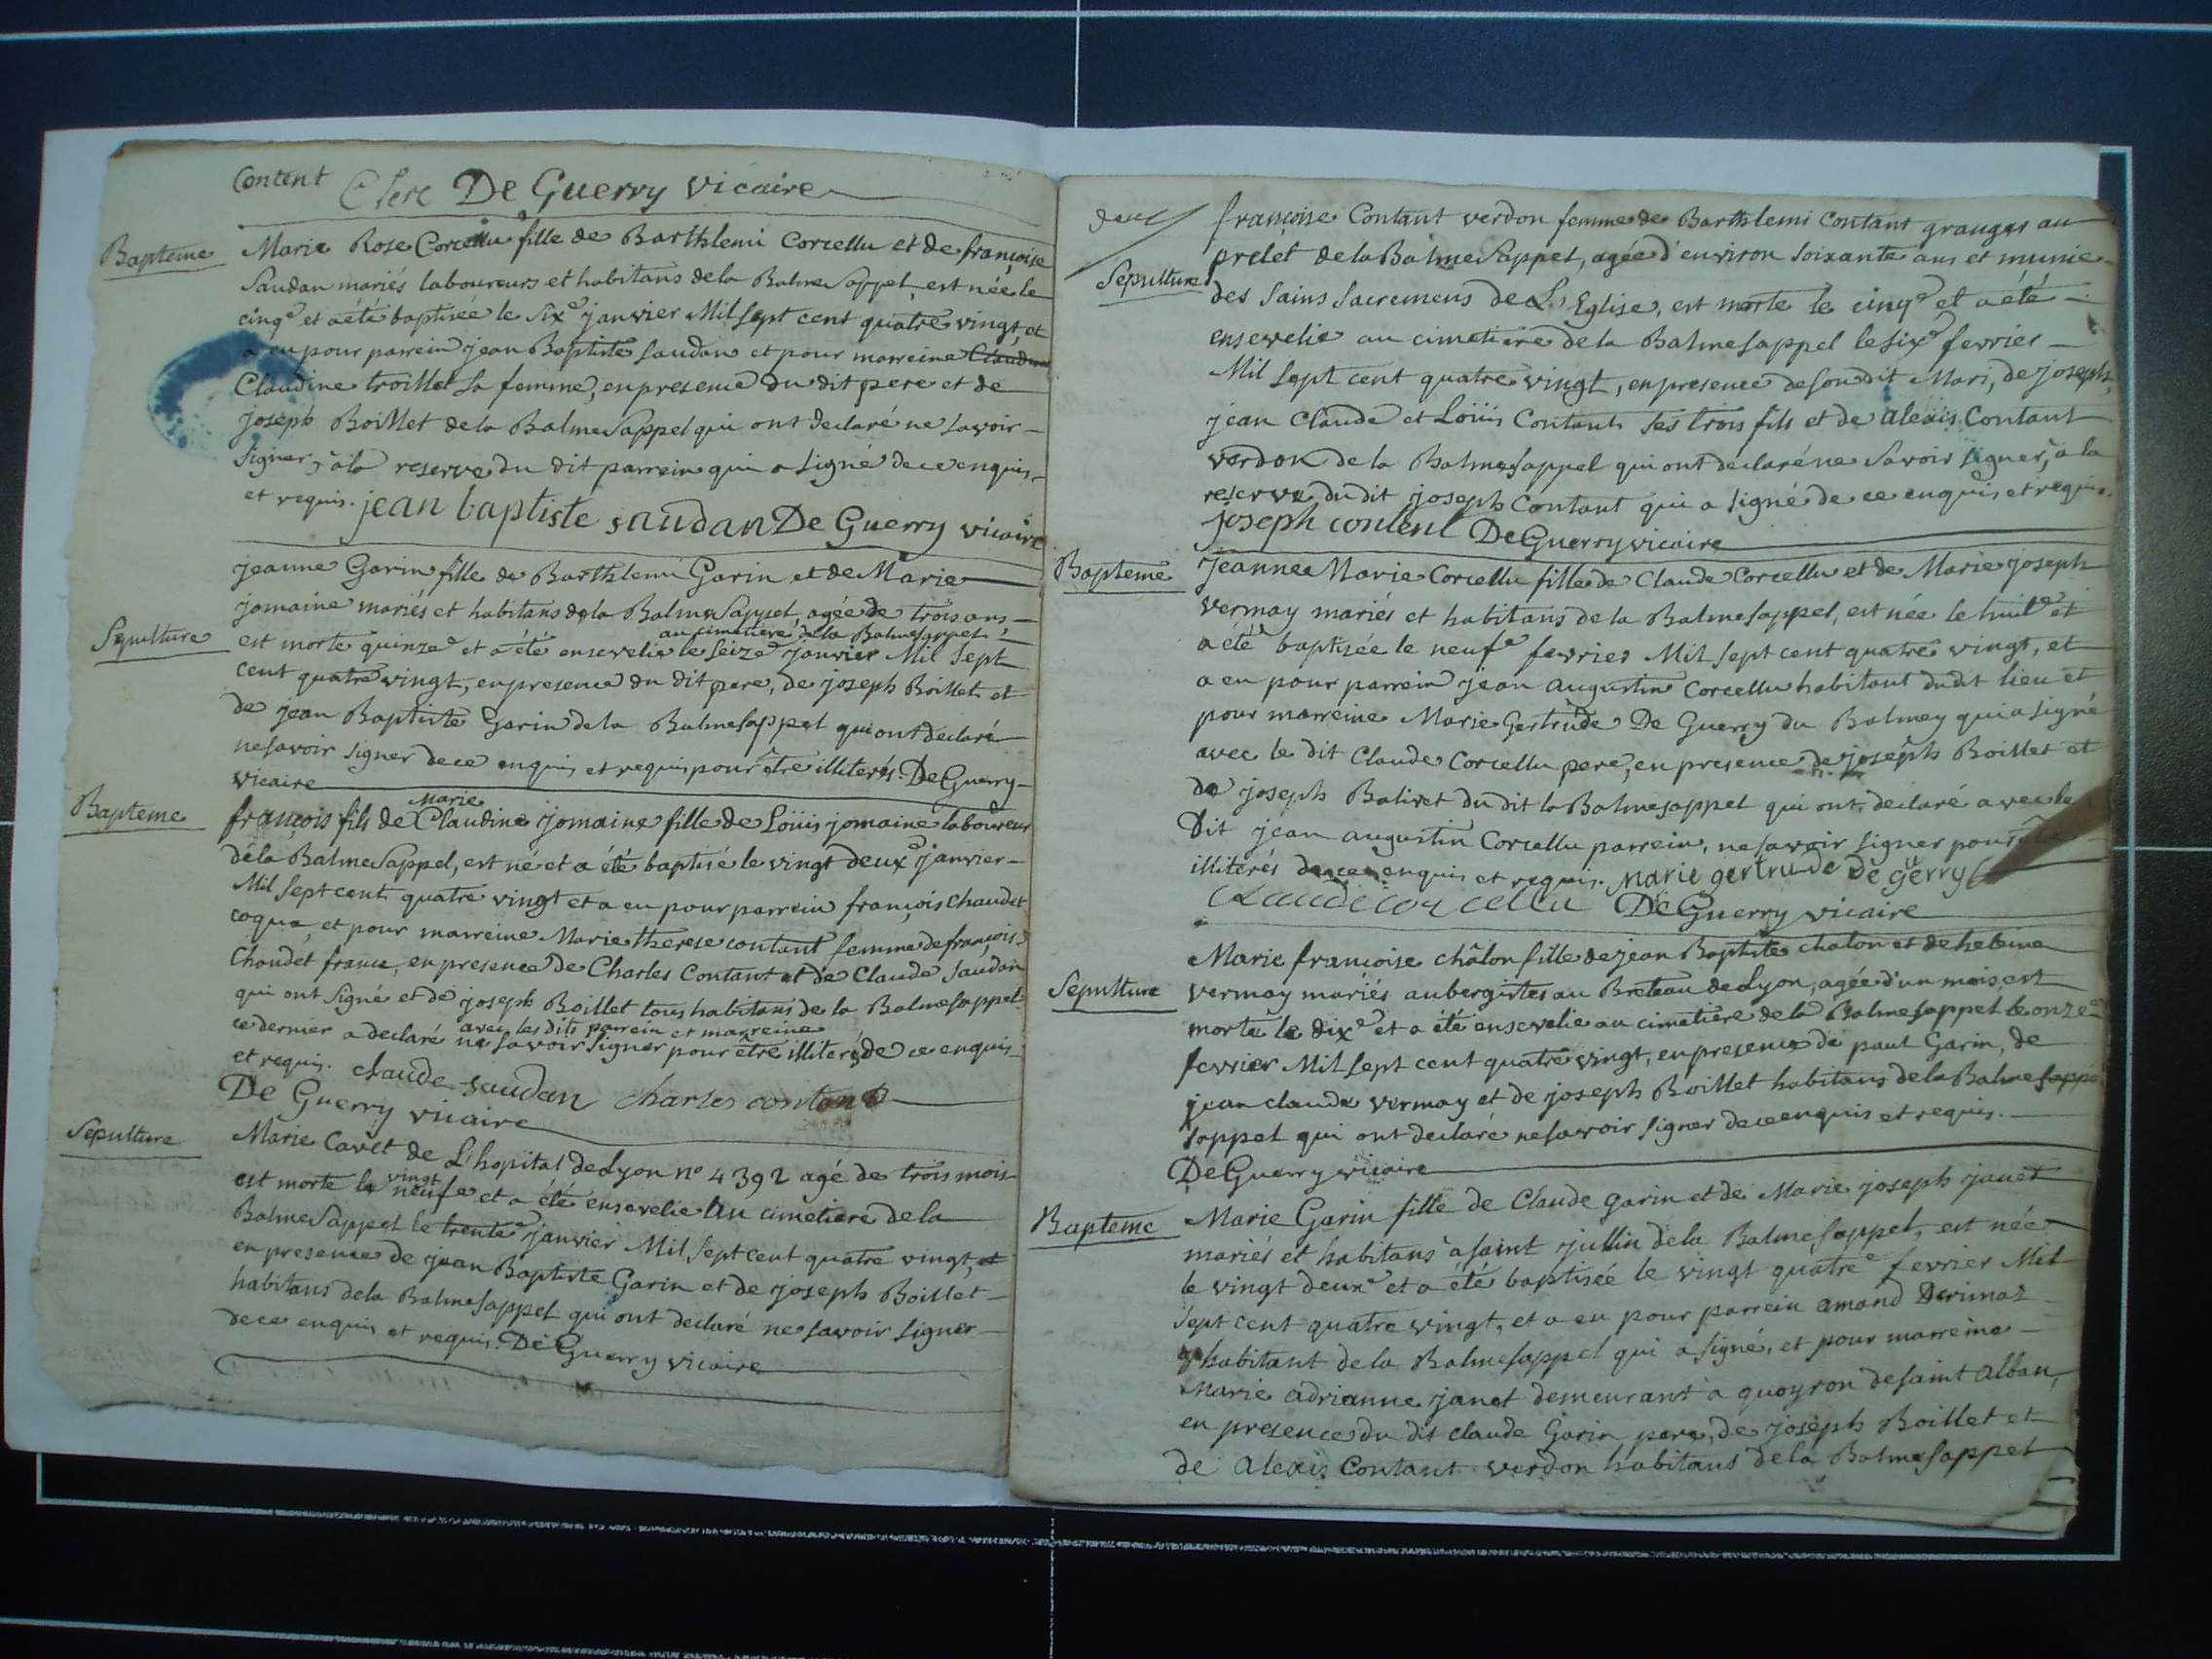 Content Clerc De Guerry vicaire
Bapteme
Marie Rose Corcellu fille de Barthlemi Corcellu et de françoise
Saudan mariés laboureurs et habitans de la Balme Sappel, est née le
cinqe et a été baptisée le sixe janvier Mil sept cent quatre vingt, et
a eu pour parrein jean Baptiste Saudan et pour marreine Claudine
Claudine troillet sa femme, en presence du dit pere et de
joseph Boillet de la Balme Sappel qui ont declaré ne savoir
signer, à la reserve du dit parrein qui a signé de ce enquis
et requis. jean baptiste saudan De Guerry vicaire
Sepulture
jeanne Garin fille de Barthlemi Garin et de Marie
jomaine mariés et habitans de la Balme Sappel, agée de trois ans
au cimetiere de la Balmesappel
est morte quinze et a été ensevelie le seize janvier Mil sept
cent quatre vingt, en presence du dit pere, de joseph Boillet et
de jean Baptiste Garin de la Balmesappel qui ont declaré
ne savoir signer de ce enquis et requis pour être illiterés. De Guerry
vicaire
Bapteme
Marie
françois fils de Claudine jomaine fille de Loüis jomaine laboureur
de la Balme Sappel, est né et a été baptisé le vingt deuxe janvier
Mil sept cent quatre vingt et a eu pour parrein françois chaudet
coqua, et pour marreine Marie therese contant femme de françois
Chaudet france, en presence de Charles Contant et de Claude Saudan
qui ont signé et de joseph Boillet tous habitans de la Balmesappel
avec les dits parrein et marreine
ce dernier a declaré ne savoir signer pour être illiterés de ce enquis
et requis. claude saudan charles contant
De Guerry vicaire
Sepulture
Marie Cavet de L'hopital de Lyon no 4392 agé de trois mois
vingt
est morte le neufe et a été ensevelie au cimetiere de la
Balme Sappel le trente janvier Mil sept cent quatre vingt, et
en presence de jean Baptiste Garin et de joseph Boillet
habitans de la Balmesappel qui ont declaré ne savoir signer
de ce enquis et requis. De Guerry vicaire
deux
françoise Contant verdon femme de Barthlemi Contant granger au
prelet de la Balme Sappel, agée d'environ soixante ans et munie
Sepulture
des sains sacremens de L'Eglise, est morte le cinqe et a été
ensevelie au cimetiere de la Balmesappel le sixe fevrier
Mil sept cent quatre vingt, en presence de son dit Mari, de joseph,
jean Claude et Loüis Contant ses trois fils et de alexis Contant
verdon de la Balmesappel qui ont declaré ne savoir signer, à la
reserve du dit joseph Contant qui a signé de ce enquis et requis.
joseph content De Guerry vicaire
Bapteme
jeanne Marie Corcellu fille de Claude Corcellu et de Marie joseph
vermay mariés et habitans de la Balmesappel, est née le huite et
a été baptisée le neufe fevrier Mil sept cent quatre vingt, et
a eu pour parrein jean augustin Corcellu habitant dudit lieu et
pour marreine Marie Gertrude De Guerry du Balmey qui a signé
avec le dit Claude Corcellu pere, en presence de joseph Boillet et
de joseph Balivet du dit la Balmesappel qui ont declaré avec le
Dit jean augustin Corcellu parrein, ne savoir signer pour
illiterés de ce enquis et requis. Marie gertrude de gerry
Claude corcellu De Guerry vicaire
Sepulture
Marie françoise châlon fille de jean Baptiste chalon et de heleine
vermay mariés aubergistes au Breteau de Lyon, agée d'un mois, est
morte le dixe et a été ensevelie au cimetiere de la Balmesappel le onze
fevrier Mil sept cent quatre vingt, en presence de paul Garin, de
jean claude vermay et de joseph Boillet habitans de la Balme sappe
sappel qui ont declaré ne savoir signer de ce enquis et requis.
De Guerry vicaire
Bapteme
Marie Garin fille de Claude garin et de Marie joseph janet
mariés et habitans a saint jullin de la Balmesappel, est née
le vingt deuxe et a été baptisée le vingt quatre fevrier Mil
sept cent quatre vingt, et a eu pour parrein amand Derimaz
habitant de la Balmesappel qui a signé, et pour marreine
Marie adrianne janet demeurant a quoyron de saint alban,
en presence du dit claude Garin pere, de joseph Boillet et
de alexis Contant verdon habitans de la Balmesappel